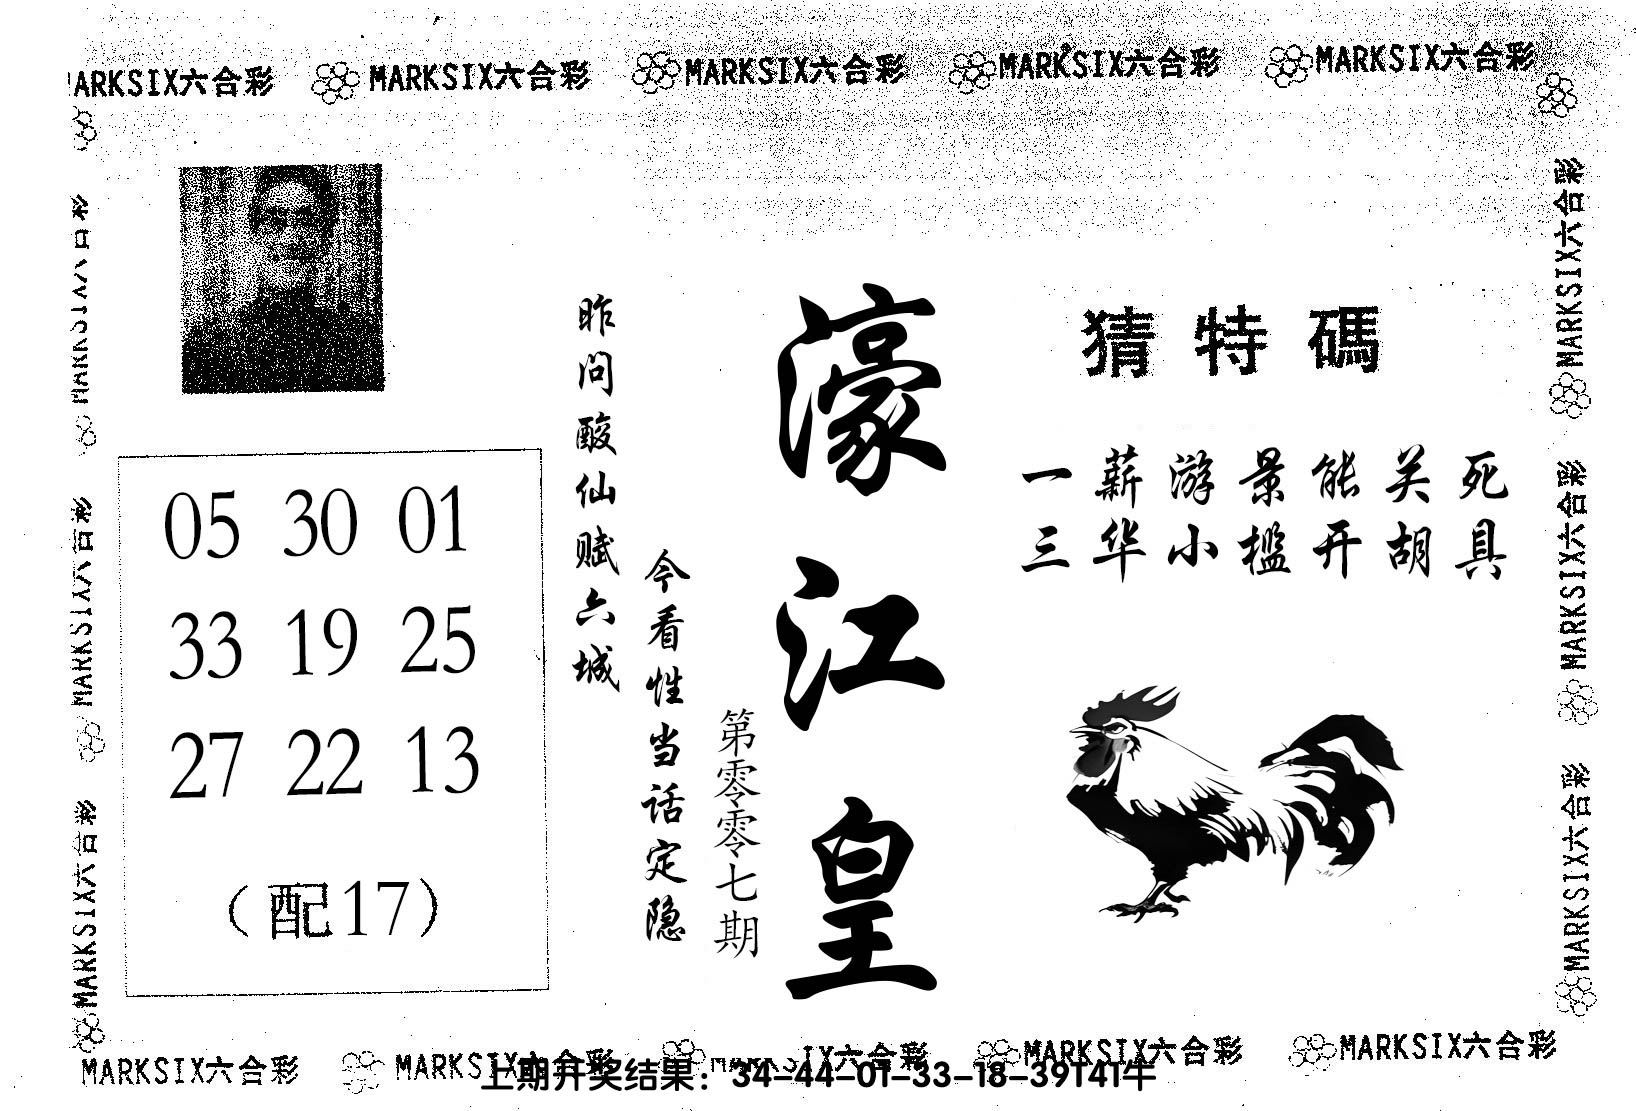 MARKSIX六合彩 MARKSIX六合彩 MARKSIX六合彩 MARKSIX六合彩 MARKSIX六合彩
MARKSIX六合彩
MARKSIX六合彩
MARKSIX六合彩
05 30 01
33 19 25
27 22 13
（配17）
昨问酸仙赋六城
今看性当话定隐
第零零七期
濠江皇
猜特碼
一薪游景能关死
三华小槛开胡具
MARKSIX六合彩
MARKSIX六合彩
MARKSIX六合彩
MARKSIX六合彩 MARKSIX六合彩 MARKSIX六合彩 MARKSIX六合彩 MARKSIX六合彩
上期开奖结果：34-44-01-33-18-39T41牛